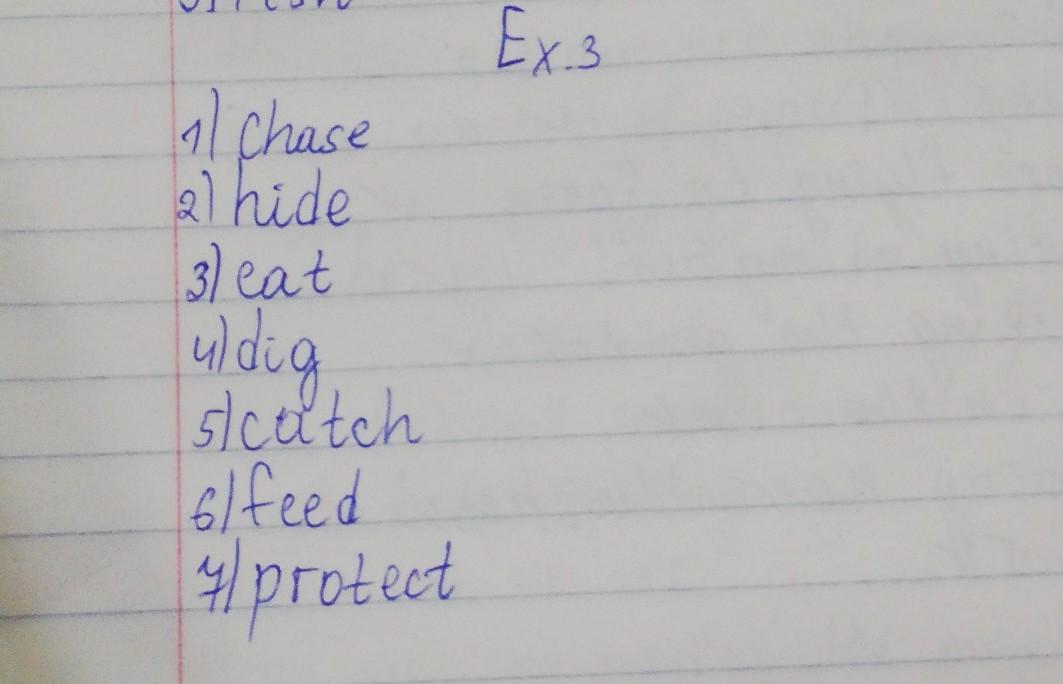 Ex.3
1) Chase
2) hide
3) eat
4) dig
5) catch
6) feed
7) protect